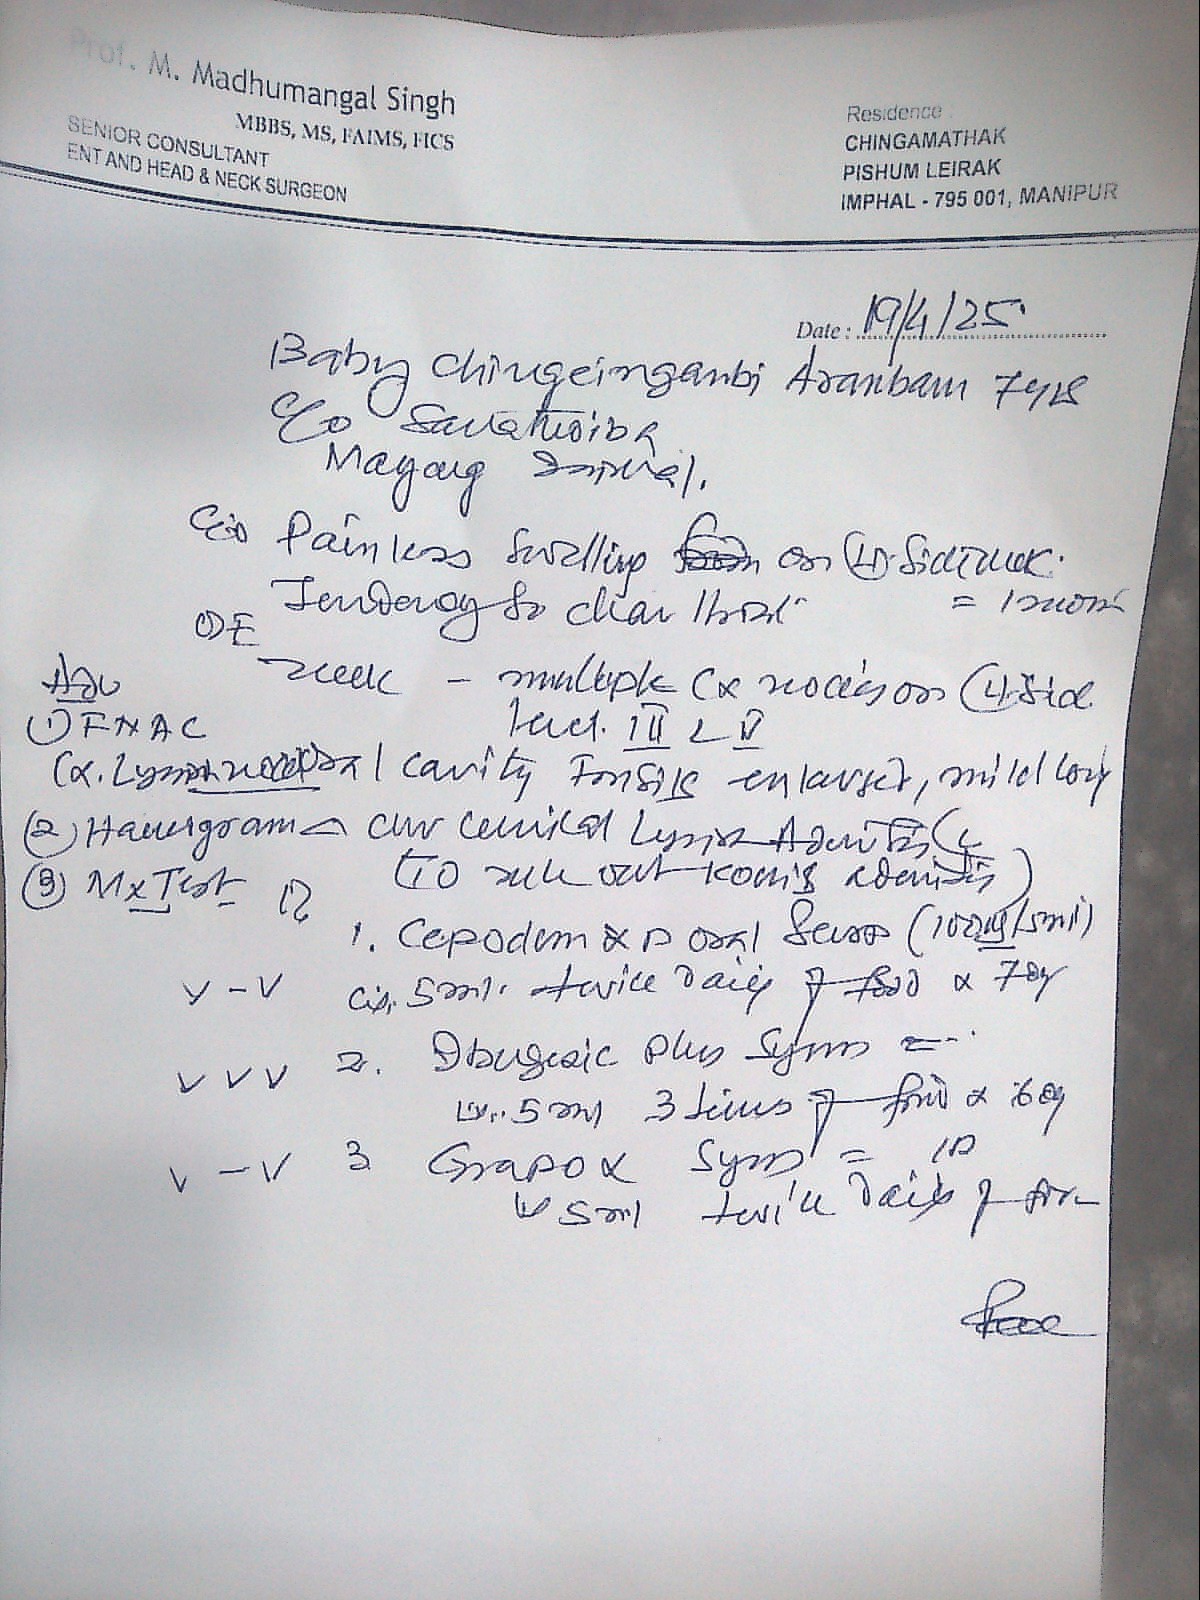 Prof. M. Madhumangal Singh
MBBS, MS, FAIMS, FICS
SENIOR CONSULTANT
ENT AND HEAD & NECK SURGEON
Residence :
CHINGAMATHAK
PISHUM LEIRAK
IMPHAL - 795 001, MANIPUR
Date : 19/4/25
Baby Chingeinganbi Arambam 7 yrs
C/o Sanathoiba
Mayang Imphal.
C/o Painless Swelling on (L) Side neck.
Tendency to clear throat = 1 month
O/E
neck - multiple Cx nodes on (L) Side
Level. III & V
Adv
1) FNAC
Cx. Lymph node
oral cavity Tonsils enlarged, mild
(2) Haemogram
△ Chr Cervical Lymph Adenitis (L
(3) Mx Test
(To rule out Koch's adenitis)
R
1. Cepodem XP oral Susp (100mg/5ml)
v - v 5ml. twice daily food x 7 day
v v v 2. Ibugesic Plus Syrup =
5 ml 3 times food x 6 day
v - v 3. Grapox Syrup =
5ml twice daily